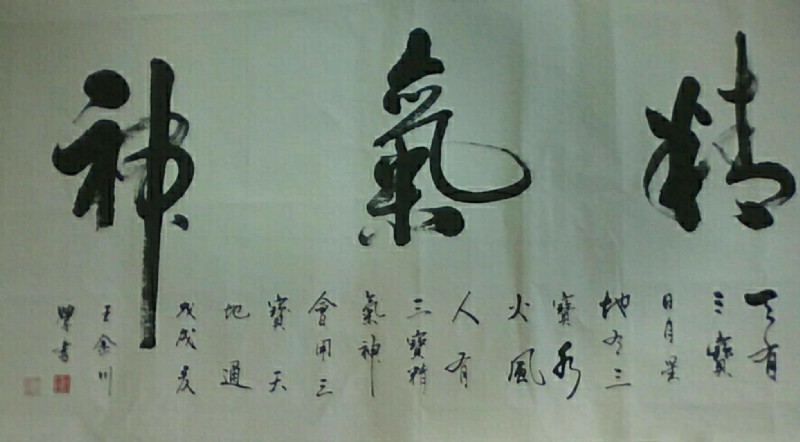 精氣神
天有
三寶
日月星
地有三
寶水
火風
人有
三寶精
氣神
會用三
寶天
地通
戊戌夏
王金川
學書